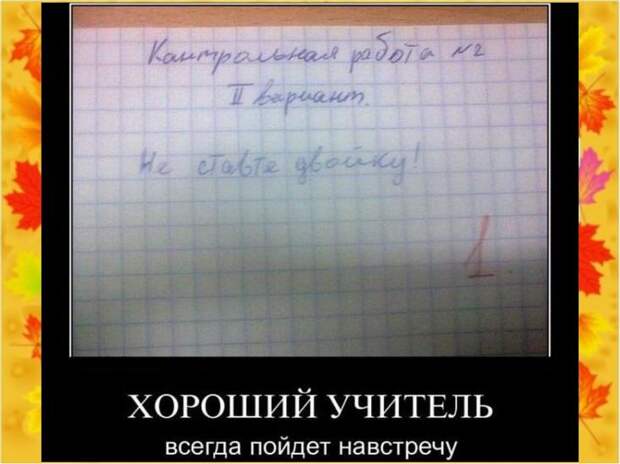 Контрольная работа №2
II вариант.
Не ставте двойку!
1.
ХОРОШИЙ УЧИТЕЛЬ
всегда пойдет навстречу